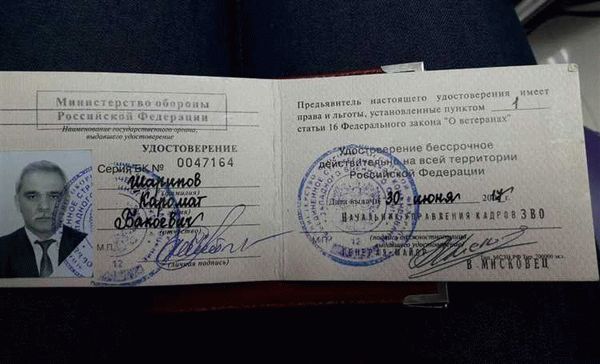 Министерство обороны
Российской Федерации
Наименование государственного органа,
выдавшего удостоверение
УДОСТОВЕРЕНИЕ
Серия БК № 0047164
Шарипов
(фамилия)
Каромат
Бакоевич
М.П.
(личная подпись)
Предъявитель настоящего удостоверения имеет
права и льготы, установленные пунктом 1
статьи 16 Федерального закона "О ветеранах"
Удостоверение бессрочное
действительно на всей территории
Российской Федерации
Дата выдачи 30 июня
НАЧАЛЬНИК УПРАВЛЕНИЯ КАДРОВ ЗВО
В. МИСКОВЕЦ